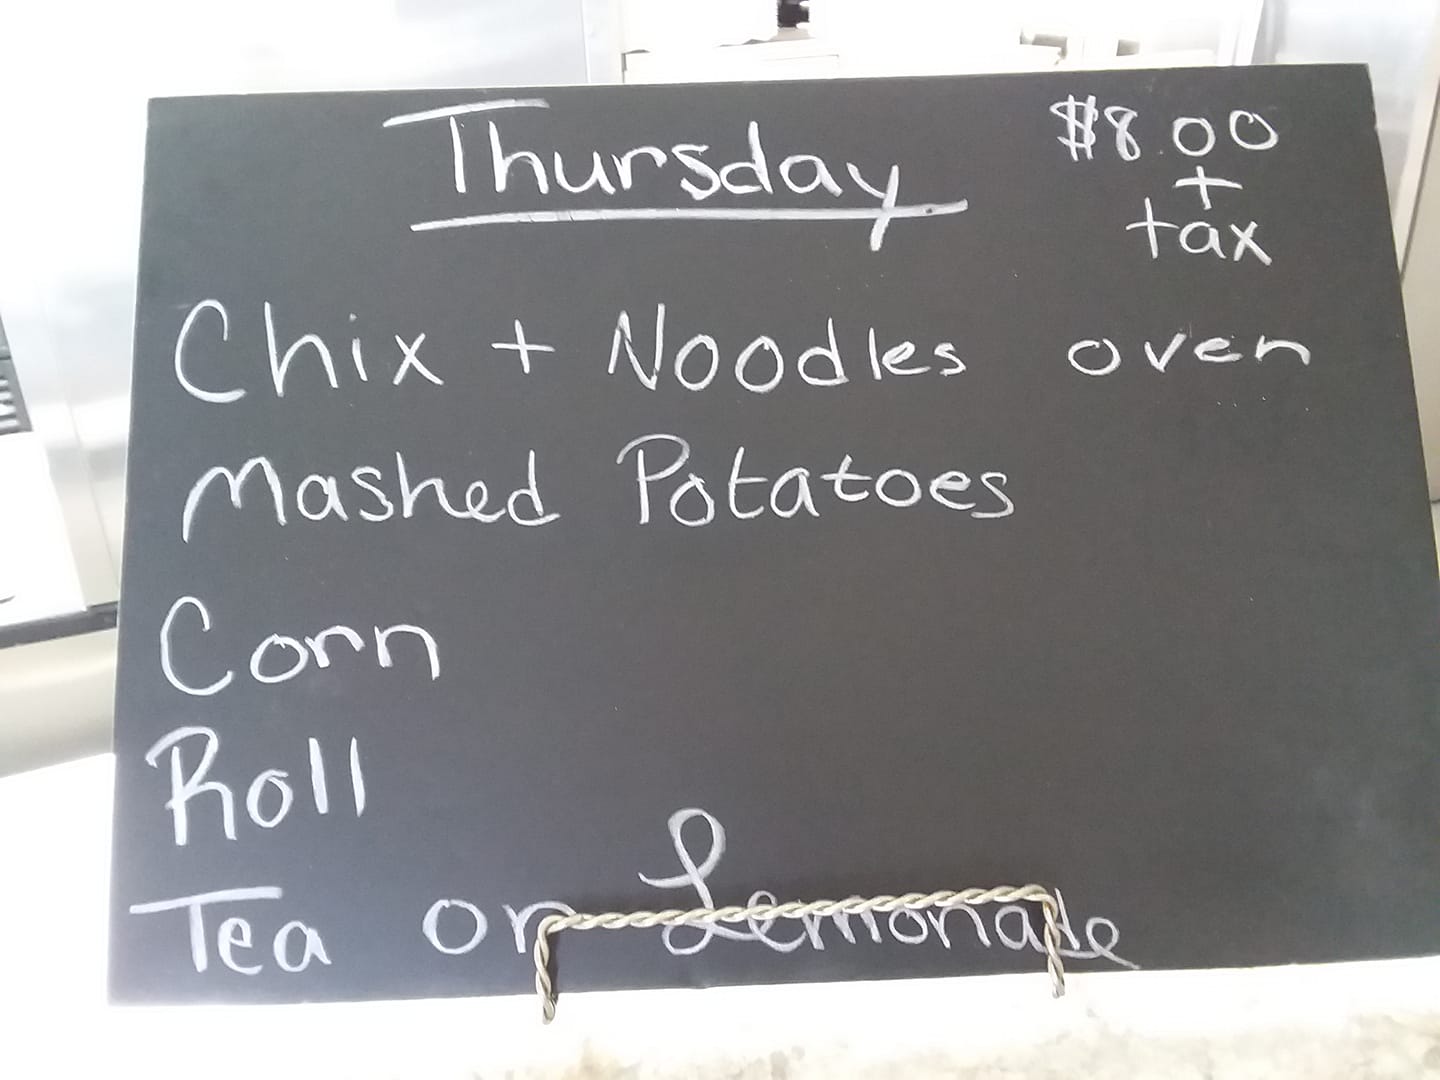 Thursday
$8.00
+
tax
Chix + Noodles oven
Mashed Potatoes
Corn
Roll
Tea or Lemonade